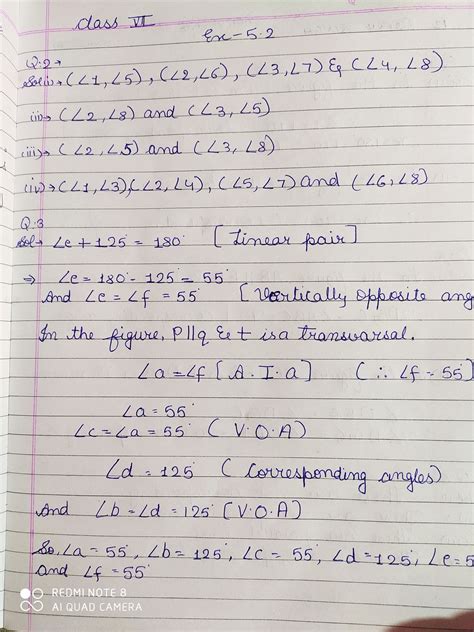 class VI
Ex-5.2
Q.2→
Sol(i)→ (∠1,∠5), (∠2,∠6), (∠3,∠7) & (∠4, ∠8)
(ii)→ (∠2,∠8) and (∠3,∠5)
(iii)→ (∠2,∠5) and (∠3,∠8)
(iv)→ (∠1,∠3),(∠2,∠4), (∠5,∠7) and (∠6,∠8)
Q.3
Sol→ ∠e + 125° = 180° [Linear pair]
⇒ ∠e = 180° - 125° = 55°
And ∠e = ∠f = 55° [Vertically opposite ang
In the figure, P||q & t is a transvarsal.
∠a = ∠f [A.I.a] (∴ ∠f = 55°)
∠a = 55°
∠c = ∠a = 55° (V.O.A)
∠d = 125° (Corresponding angles)
And ∠b = ∠d = 125° [V.O.A)
So, ∠a = 55°, ∠b = 125°, ∠c = 55°, ∠d = 125°, ∠e = 5
and ∠f = 55°
REDMI NOTE 8
AI QUAD CAMERA